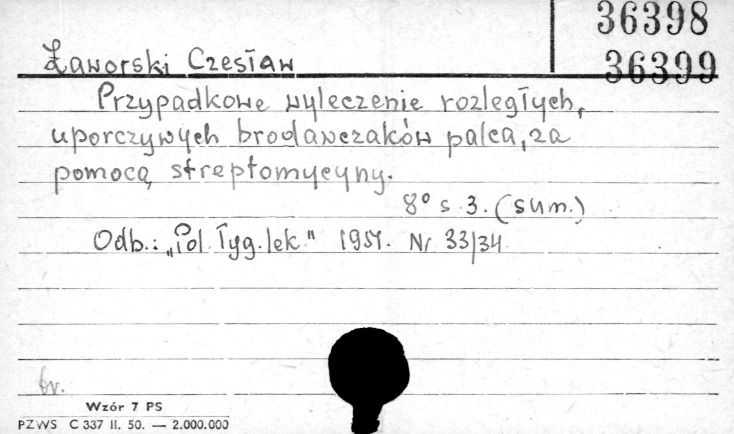 36398
Ławorski Czesław
36399
Przypadkowe wyleczenie rozległych,
uporczywych brodawczaków palca, za
pomocą streptomycyny.
8° s. 3. (sum.)
Odb.: „Pol. Tyg. lek." 1951. Nr 33/34
br.
Wzór 7 PS
PZWS C 337 II. 50. — 2.000.000